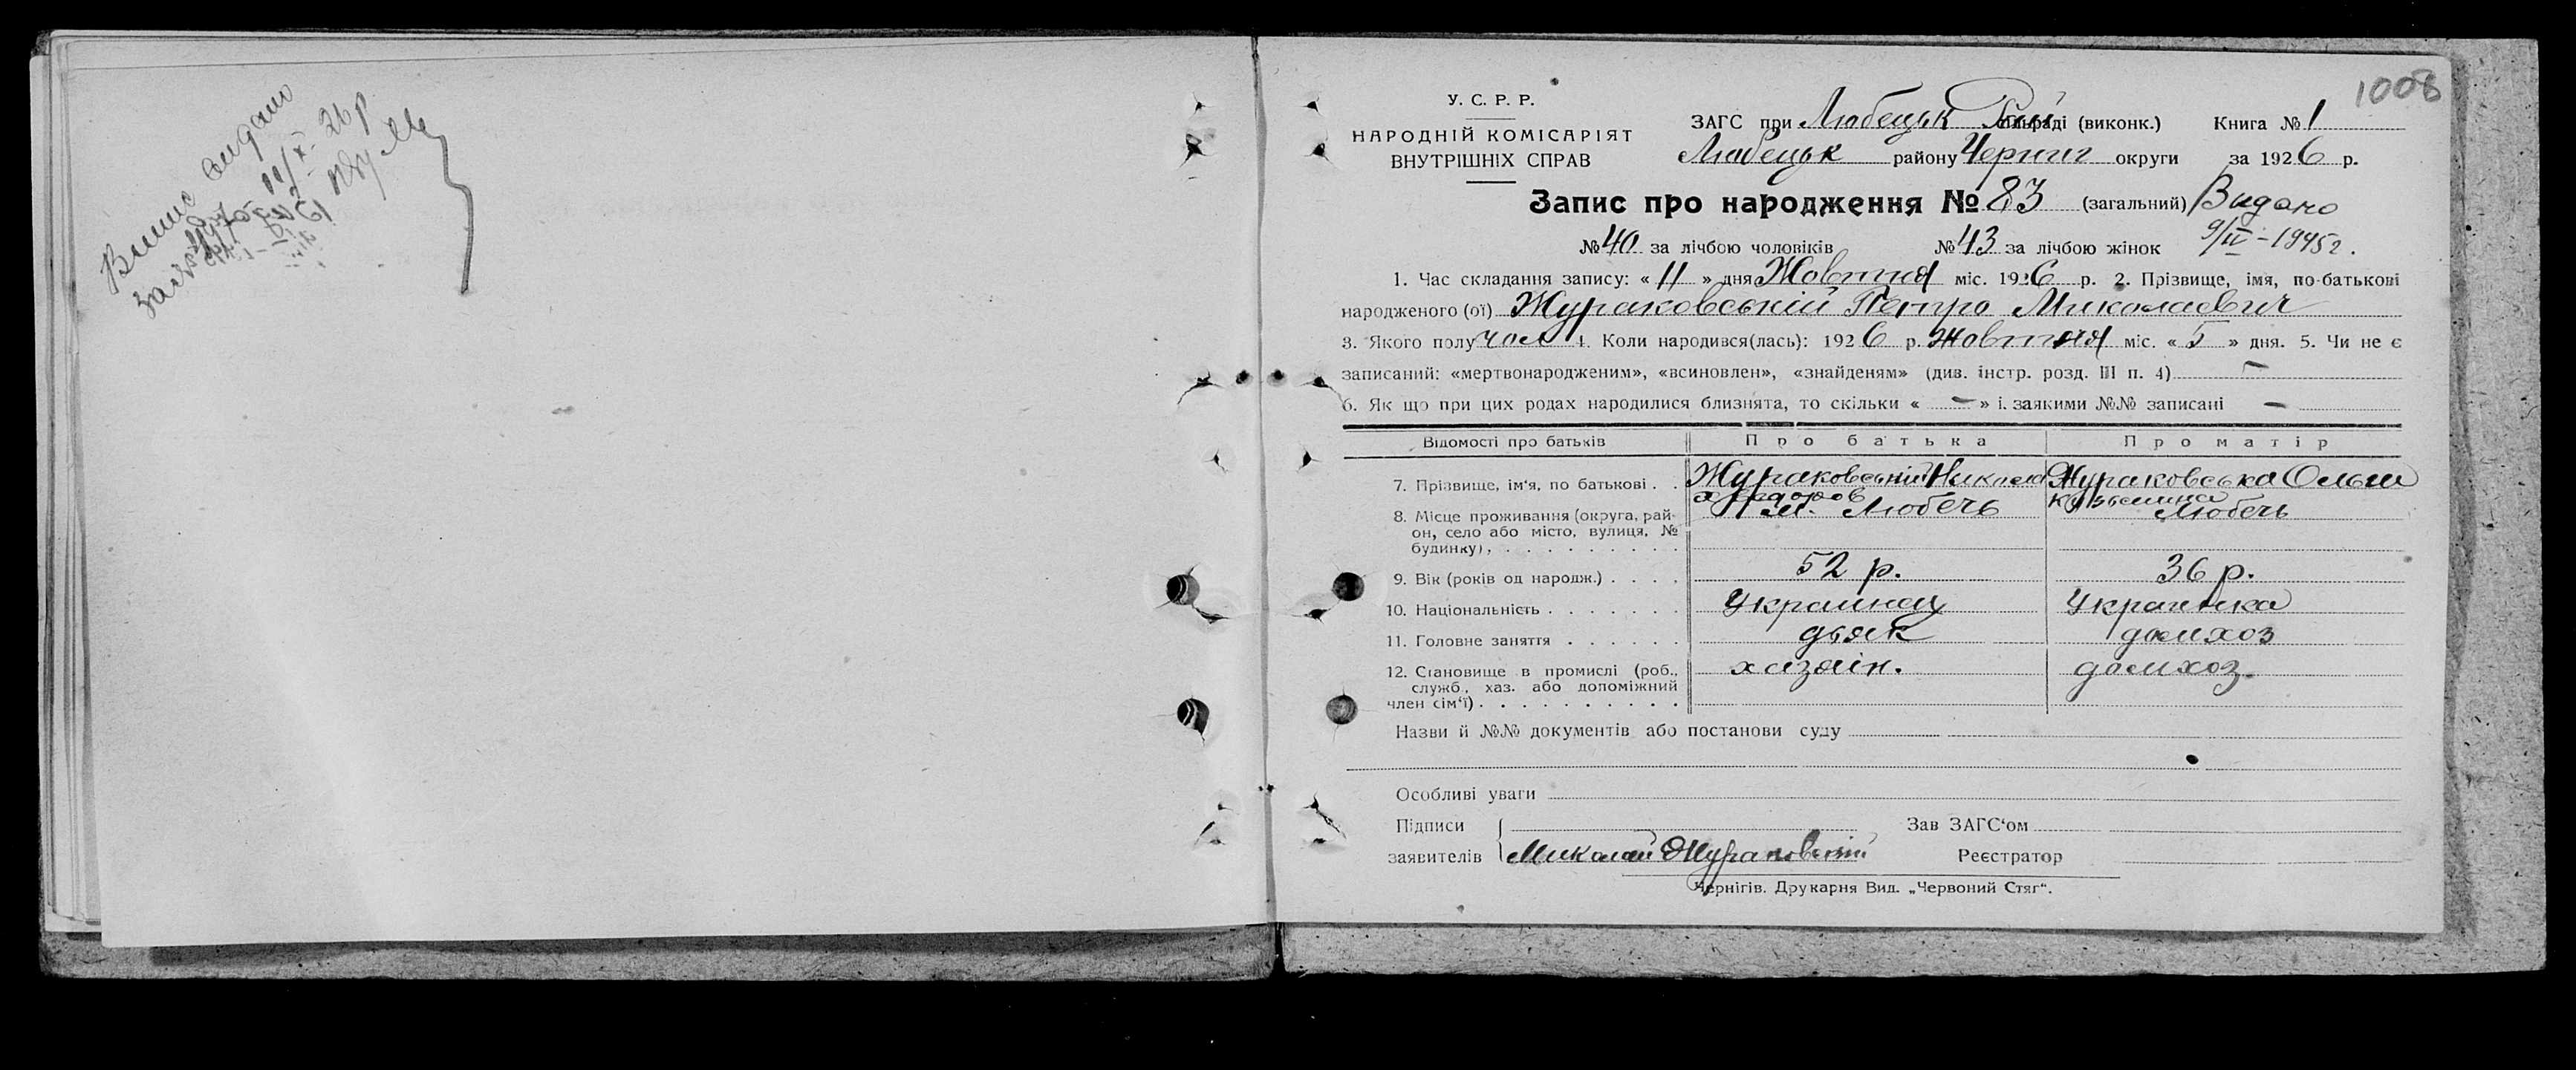 Випис видано
11/X-26 р
1008
У. С. Р. Р.
НАРОДНІЙ КОМІСАРІЯТ
ВНУТРІШНІХ СПРАВ
ЗАГС при Любецьк сільраді (виконк.) Книга № 1
Любецьк району Черниг округи за 1926 р.
Запис про народження № 83 (загальний) Видано
9/II-1945 г.
№ 40 за лічбою чоловіків № 43 за лічбою жінок
1. Час складання запису: « 11 » дня Жовтня міс. 1926 р. 2. Прізвище, імя, по-батькові
народженого (ої) Жураковській Петро Миколаевич
3. Якого полу чол 4. Коли народився(лась): 1926 р. Жовтня міс. « 5 » дня. 5. Чи не є
записаний: «мертвонародженим», «всиновлен», «знайденям» (див. інстр. розд. III п. 4) —
6. Як що при цих родах народилися близнята, то скільки « — » і. заякими №№ записані —
Відомості про батьків Про батька Про матір
7. Прізвище, ім'я, по батькові . . Жураковській Николай Жураковська Ольга
Кузьминна
8. Місце проживання (округа, рай- м. Любечь Любечь
он, село або місто, вулиця, №
будинку) . . . . . . . . . .
9. Вік (років од народж.) . . . . 52 р. 36 р.
10. Національність . . . . . . . Украинец Украинка
11. Головне заняття . . . . . . дьяк домхоз
12. Становище в промислі (роб., хазяін. домхоз.
служб, хаз. або допоміжний
член сім'ї) . . . . . . . . . .
Назви й №№ документів або постанови суду
Особливі уваги
Підписи Зав ЗАГС'ом
заявителів Миколай Жураковский Реєстратор
Чернігів. Друкарня Вид. „Червоний Стяг“.